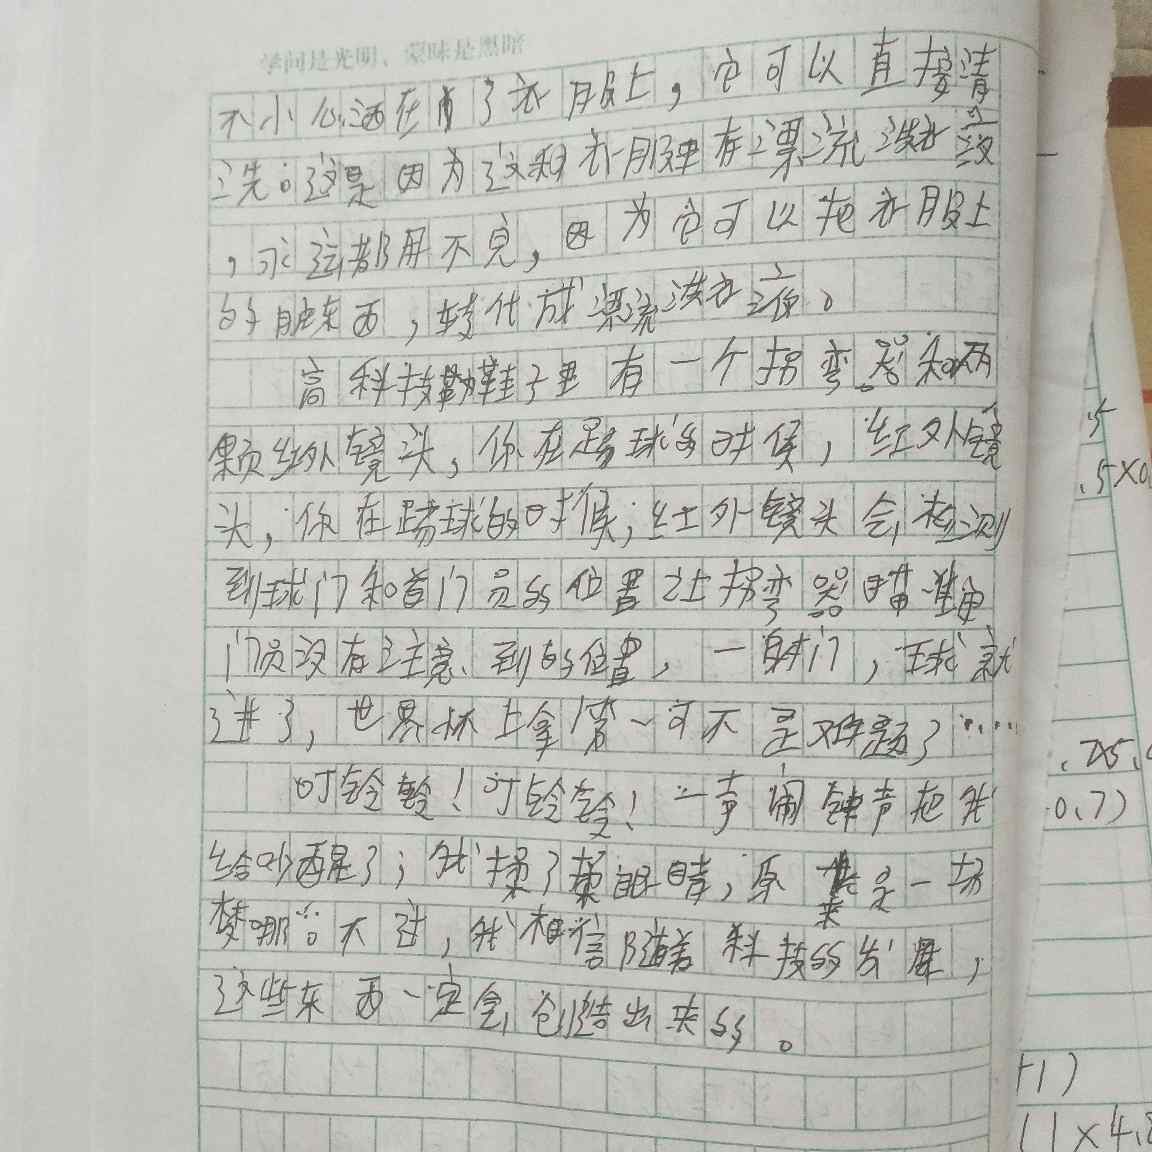 学问是光明，蒙昧是黑暗
不小心洒在了衣服上，它可以直接清
洗。这是因为这种衣服里有漂流洗衣液
，永远都用不完，因为它可以把衣服上
的脏东西，转化成漂流洗衣液。
高科技鞋子里有一个拐弯器和两
颗红外镜头，你在踢球的时候，红外镜
头，你在踢球的时候；红外镜头会检测
到球门和首门员的位置让拐弯器瞄准
门员没有注意到的位置，一射门，球就
进了，世界杯上拿第一可不是难题了……
叮铃铃！叮铃铃！一声闹钟声把我
给吵醒了；我揉了揉眼睛，原来是一场
梦哪。不过，我相信随着科技的发展，
这些东西一定会创造出来的。
.5
.5×0
.75.
.0.7)
+1)
11×4.8